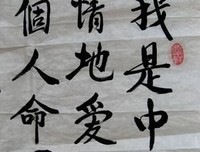 我是中
情地爱
個人命